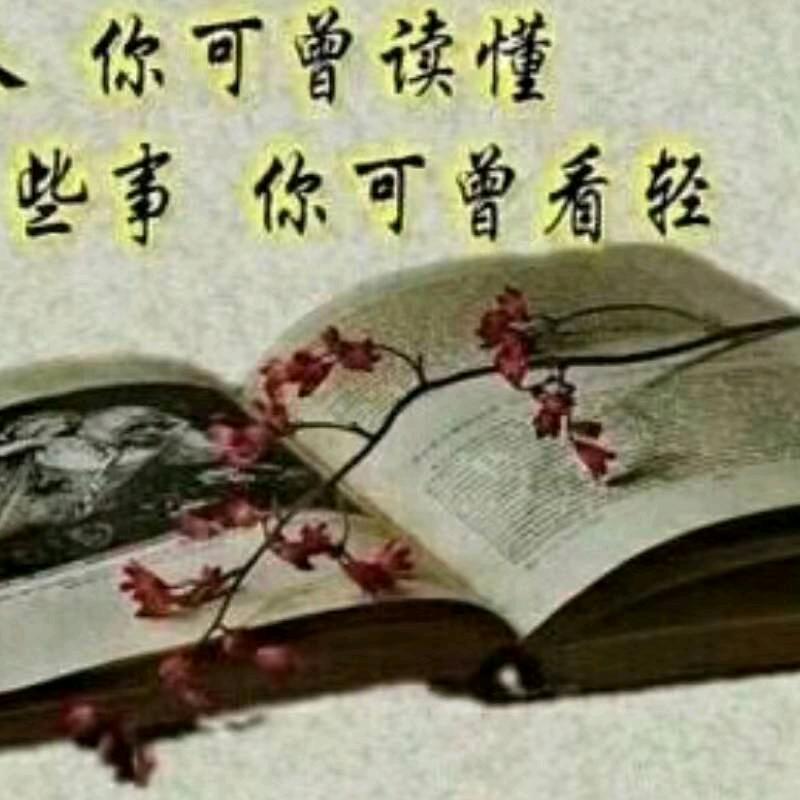 人 你可曾读懂
些事 你可曾看轻